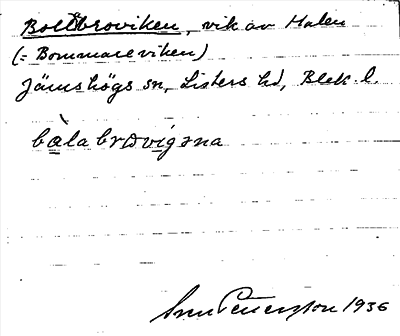 Bollebroviken, vik av Halen
(= Bommareviken)
Jämshögs sn, Listers hd, Blek. l.
bàlabrovigəna
1936